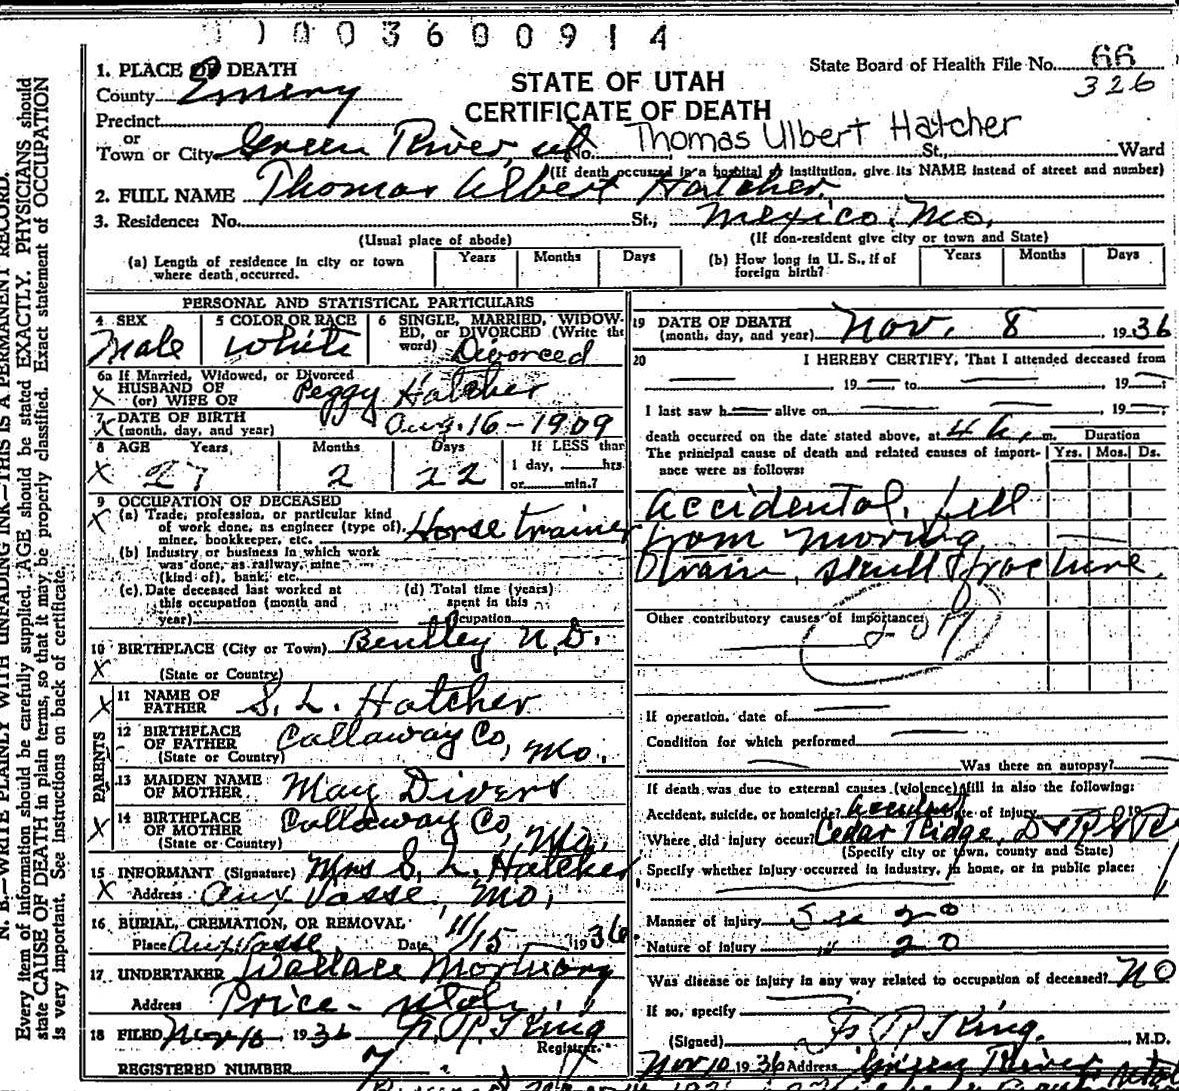 1003600914
1. PLACE OF DEATH
County Emery
Precinct
or
Town or City Green River, ut No. St., Ward
STATE OF UTAH
CERTIFICATE OF DEATH
State Board of Health File No. 66
326
Thomas Ulbert Hatcher
(If death occurred in a hospital or institution, give its NAME instead of street and number)
2. FULL NAME Thomas Albert Hatcher
3. Residence: No. St., Mexico, Mo.
(Usual place of abode) (If non-resident give city or town and State)
(a) Length of residence in city or town where death occurred. Years Months Days
(b) How long in U. S., if of foreign birth? Years Months Days
PERSONAL AND STATISTICAL PARTICULARS
4 SEX
Male
5 COLOR OR RACE
White
6 SINGLE, MARRIED, WIDOWED, or DIVORCED (Write the word) Divorced
6a If Married, Widowed, or Divorced
X HUSBAND OF
(or) WIFE OF Peggy Hatcher
7 DATE OF BIRTH
X (month, day, and year) Aug. 16 - 1909
8 AGE Years Months Days If LESS than
X 27 2 22 1 day, hrs.
or min.?
9 OCCUPATION OF DECEASED
X (a) Trade, profession, or particular kind
of work done, as engineer (type of),
miner, bookkeeper, etc. Horse trainer
(b) Industry or business in which work
was done, as railway, mine
(kind of), bank, etc.
(c) Date deceased last worked at
this occupation (month and
year)
(d) Total time (years)
spent in this
occupation
10 BIRTHPLACE (City or Town) Bentley N.D.
X (State or Country)
PARENTS
11 NAME OF
X FATHER S. L. Hatcher
12 BIRTHPLACE
OF FATHER Callaway Co, Mo.
(State or Country)
13 MAIDEN NAME
OF MOTHER May Divers
14 BIRTHPLACE
X OF MOTHER Callaway Co, Mo.
(State or Country)
15 INFORMANT (Signature) Mrs S. L. Hatcher
X Address Aux Vasse, Mo.
16 BURIAL, CREMATION, OR REMOVAL
Place Aux Vasse Date 11/15 1936
17 UNDERTAKER Wallace Mortuary
Address Price - Utah
18 FILED Nov 10 1936 F. R. King
Registrar.
REGISTERED NUMBER 7
19 DATE OF DEATH
(month, day, and year) Nov. 8 1936
20 I HEREBY CERTIFY, That I attended deceased from
19 to , 19
I last saw h alive on , 19
death occurred on the date stated above, at m. Duration
The principal cause of death and related causes of importance were as follows: Yrs. Mos. Ds.
Accidental, fell
from moving
train, skull fracture.
Other contributory causes of importance:
If operation, date of
Condition for which performed
Was there an autopsy?
If death was due to external causes (violence) fill in also the following:
Accident, suicide, or homicide? Accident Date of injury 19
Where did injury occur? Cedar Ridge, D & R G
(Specify city or town, county and State)
Specify whether injury occurred in industry, in home, or in public place:
Manner of injury See 20
Nature of injury " 20
Was disease or injury in any way related to occupation of deceased? No
If so, specify
(Signed) F. R. King. , M.D.
Nov 10 1936 Address Green River
N. B.—WRITE PLAINLY WITH UNFADING INK—THIS IS A PERMANENT RECORD.
Every item of information should be carefully supplied. AGE should be stated EXACTLY. PHYSICIANS should
state CAUSE OF DEATH in plain terms, so that it may be properly classified. Exact statement of OCCUPATION
is very important. See instructions on back of certificate.